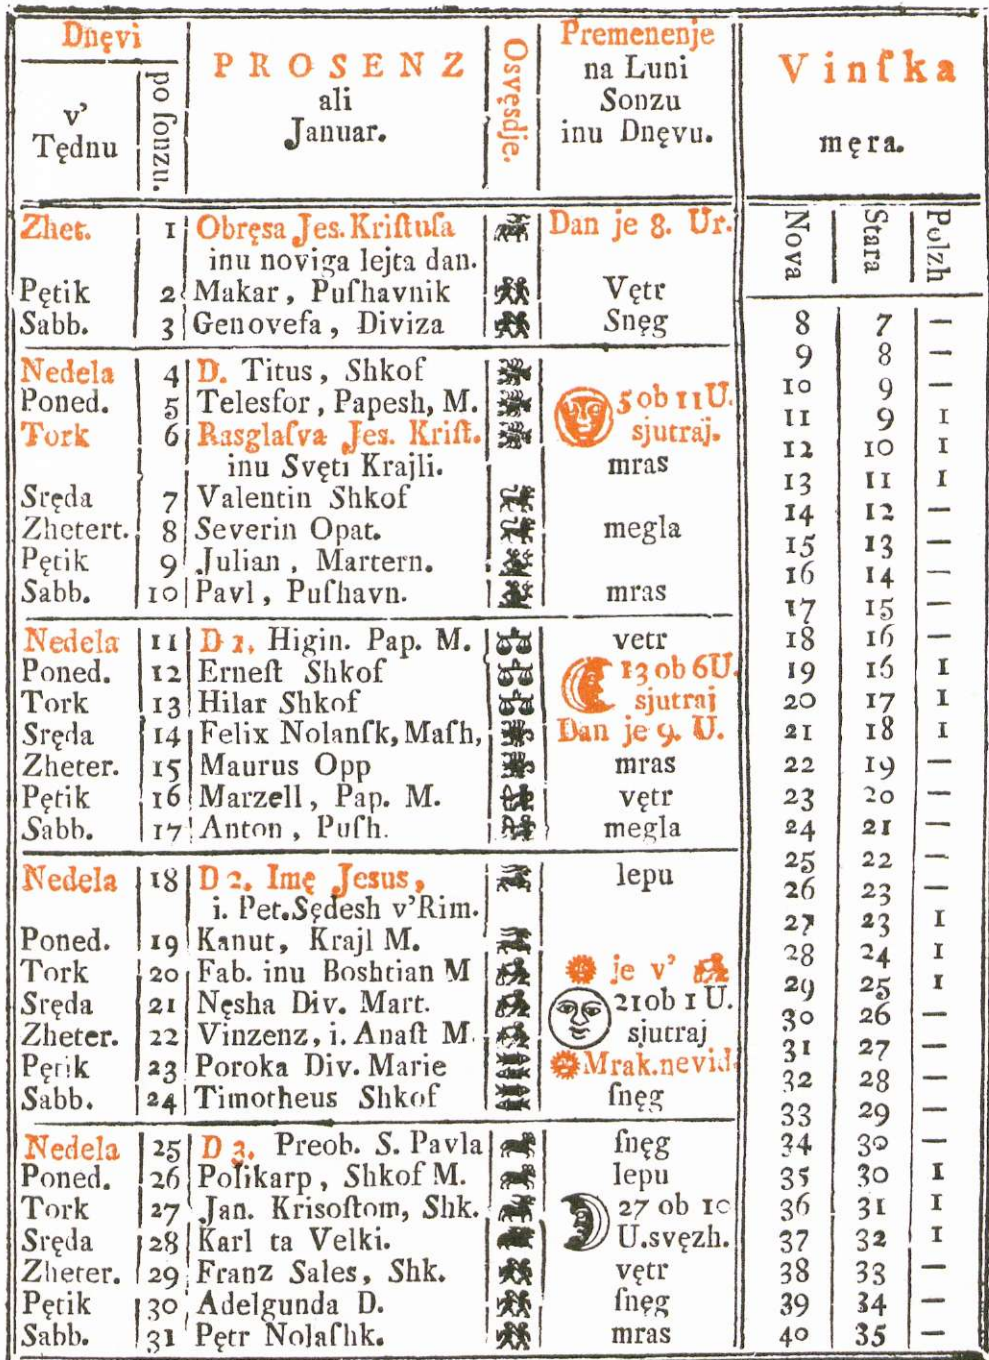 Dnęvi
v' Tędnu
po ſonzu.
PROSENZ
ali
Januar.
Osvęsdje.
Premenenje
na Luni
Sonzu
inu Dnęvu.
Vinſka
męra.
Nova Stara Polzh
Zhet. 1 Obręsa Jes. Kriſtuſa Dan je 8. Ur.
inu noviga lejta dan.
Pętik 2 Makar, Puſhavnik Vętr
Sabb. 3 Genovefa, Diviza Snęg
Nedela 4 D. Titus, Shkof
Poned. 5 Telesfor, Papesh, M. 5 ob 11 U.
Tork 6 Rasglaſva Jes. Kriſt. sjutraj.
inu Svęti Krajli. mras
Sręda 7 Valentin Shkof
Zhetert. 8 Severin Opat. megla
Pętik 9 Julian, Martern.
Sabb. 10 Pavl, Puſhavn. mras
Nedela 11 D 1. Higin. Pap. M. vetr
Poned. 12 Erneſt Shkof 13 ob 6 U.
Tork 13 Hilar Shkof sjutraj
Sręda 14 Felix Nolanſk, Maſh, Dan je 9. U.
Zheter. 15 Maurus Opp mras
Pętik 16 Marzell, Pap. M. vętr
Sabb. 17 Anton, Puſh. megla
Nedela 18 D 2. Imę Jesus, lepu
i. Pet. Sędesh v'Rim.
Poned. 19 Kanut, Krajl M.
Tork 20 Fab. inu Boshtian M je v'
Sręda 21 Nęsha Div. Mart. 21 ob 1 U.
Zheter. 22 Vinzenz, i. Anaſt M. sjutraj
Pętik 23 Poroka Div. Marie Mrak. nevid.
Sabb. 24 Timotheus Shkof ſnęg
Nedela 25 D 3. Preob. S. Pavla ſnęg
Poned. 26 Polikarp, Shkof M. lepu
Tork 27 Jan. Krisoſtom, Shk. 27 ob 10
Sręda 28 Karl ta Velki. U. svęzh.
Zheter. 29 Franz Sales, Shk. vętr
Pętik 30 Adelgunda D. ſnęg
Sabb. 31 Pętr Nolaſhk. mras
8 7 —
9 8 —
10 9 —
11 9 1
12 10 1
13 11 1
14 12 —
15 13 —
16 14 —
17 15 —
18 16 —
19 16 1
20 17 1
21 18 1
22 19 —
23 20 —
24 21 —
25 22 —
26 23 —
27 23 1
28 24 1
29 25 1
30 26 —
31 27 —
32 28 —
33 29 —
34 30 —
35 30 1
36 31 1
37 32 1
38 33 —
39 34 —
40 35 —